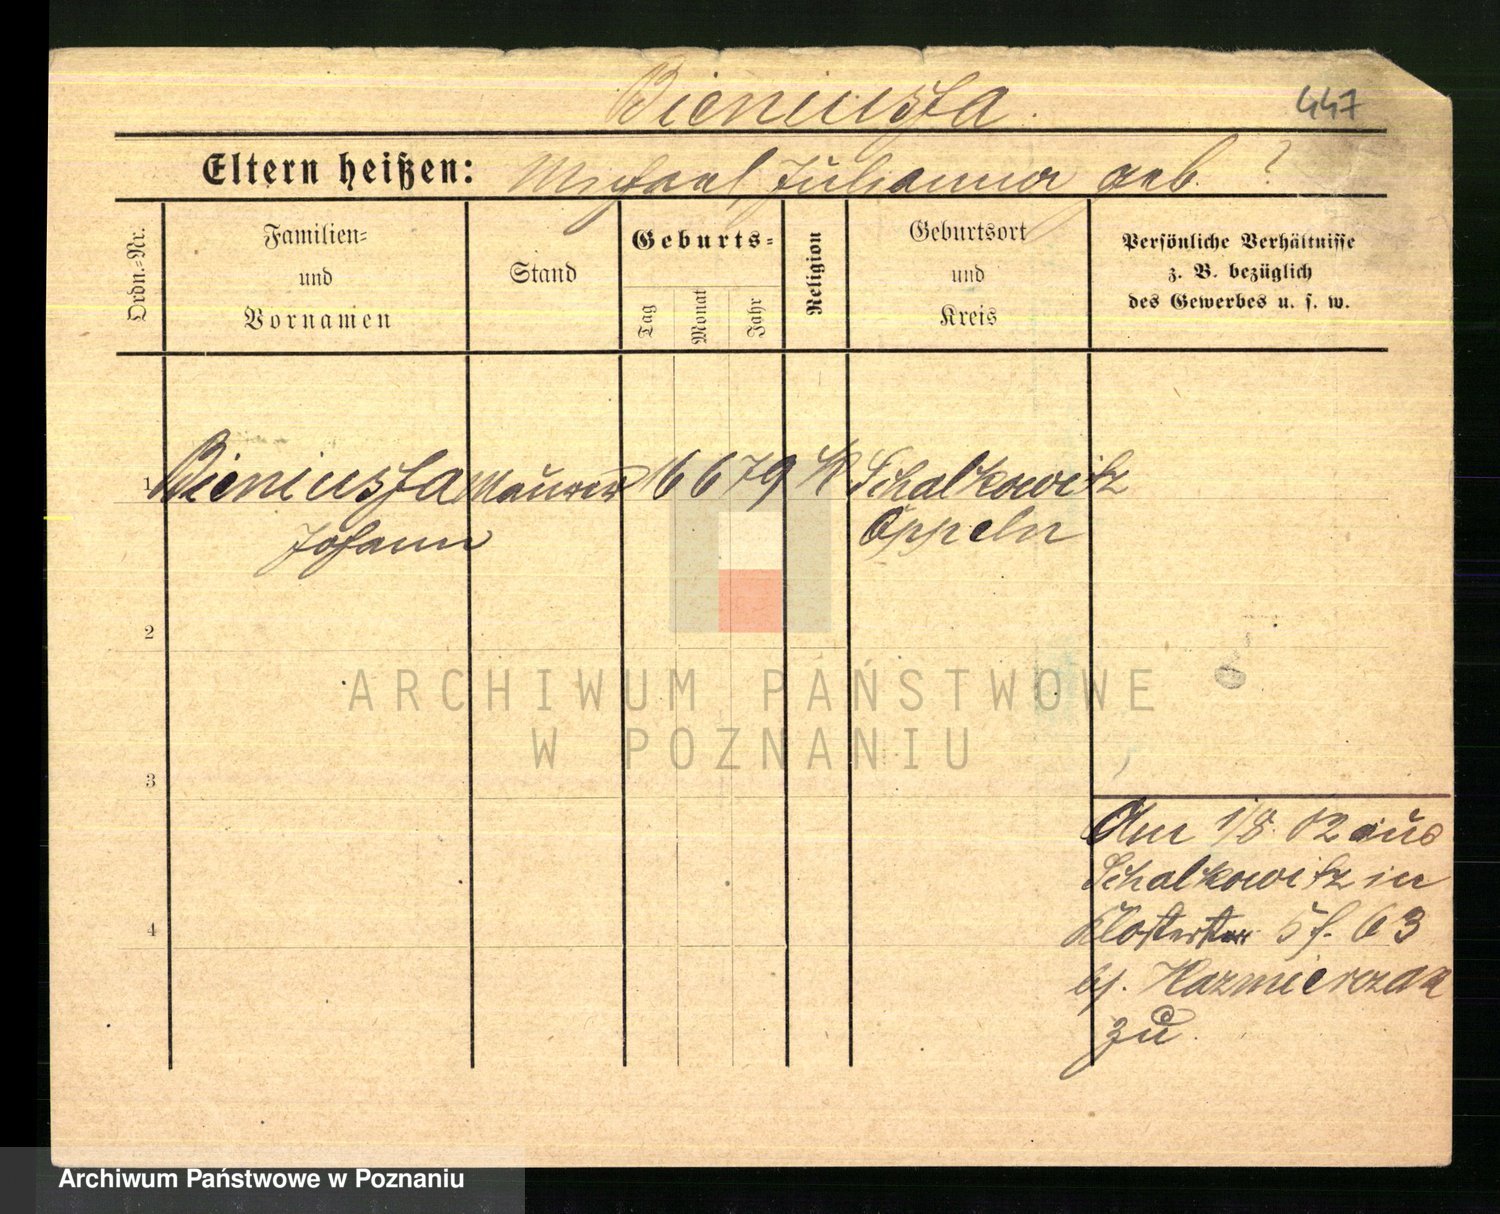 Bieniussa.
447
Eltern heißen: Michael Julianna geb. ?
Ordn.-Nr.
Familien-
und
Vornamen
Stand
Geburts-
Tag
Monat
Jahr
Religion
Geburtsort
und
Kreis
Persönliche Verhältnisse
z. B. bezüglich
des Gewerbes u. s. w.
1 Bieniussa Maurer 16 6 79 K Schalkowitz
Johann Oppeln
2
3
4
Am 1/8. 02 aus
Schalkowitz in
Klosterstr 63
bj. Kazmierczak
zu.
ARCHIWUM PAŃSTWOWE
W POZNANIU
Archiwum Państwowe w Poznaniu